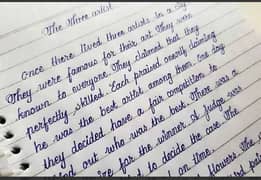 The Three artist
Once there lived three artists in a city
They were famous for their art. They were
known to everyone. They claimed that they
perfectly skilled. Each praised onerly claiming
he was the best artist among them. One day
they decided have a fair competition to
find out who was the best. There was a
for the winner. A judge was
to decide the case. The
on time.
flowers. The